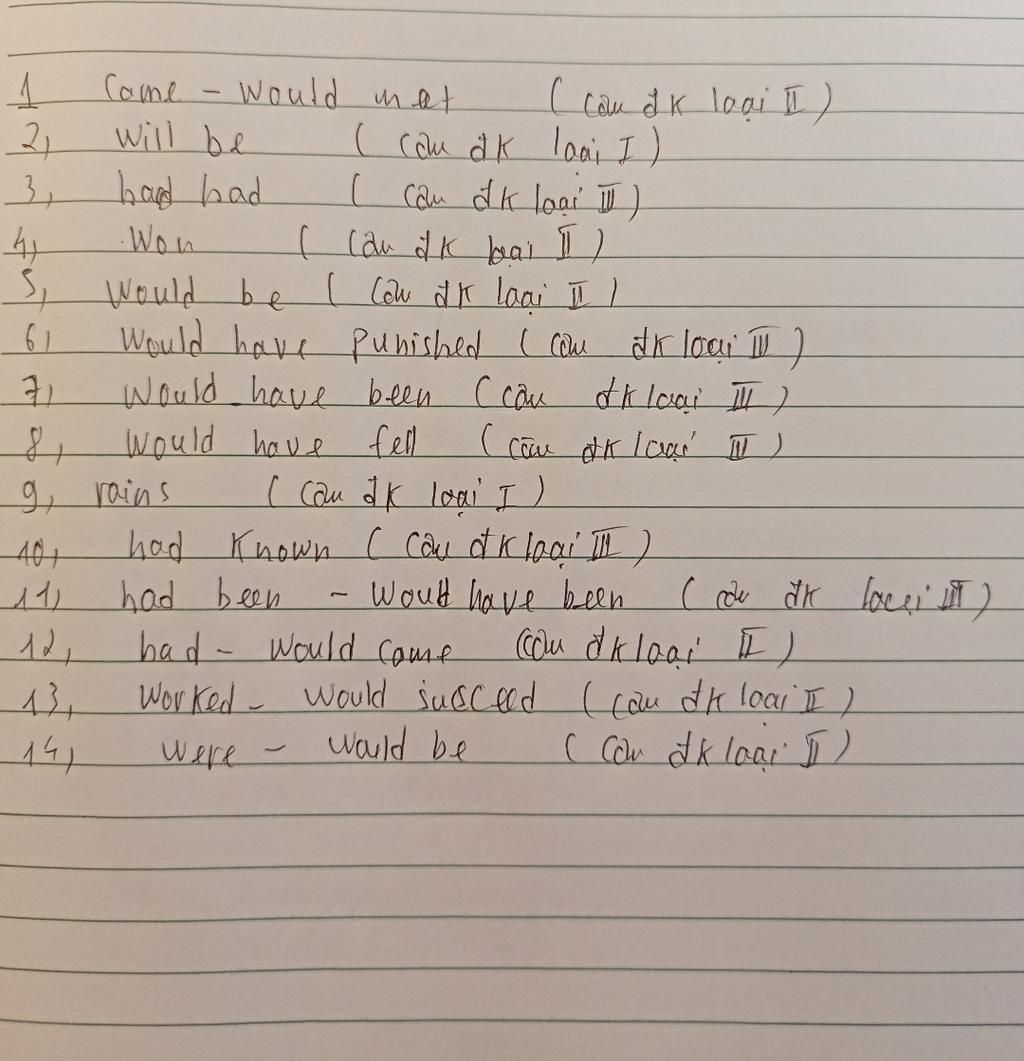 1 Came - Would met ( Câu đk loại II )
2, Will be ( Câu đk loại I )
3, had had ( Câu đk loại III )
4, Won ( Câu đk loại II )
5, Would be ( Câu đk loại II )
6, Would have punished ( Câu đk loại III )
7, Would have been ( Câu đk loại III )
8, Would have fell ( Câu đk loại III )
9, rains ( Câu đk loại I )
10, had Known ( Câu đk loại III )
11, had been - Would have been ( Câu đk loại III )
12, had - Would came (Câu đk loại II )
13, Worked - Would susceed ( Câu đk loại II )
14, Were - Would be ( Câu đk loại II )